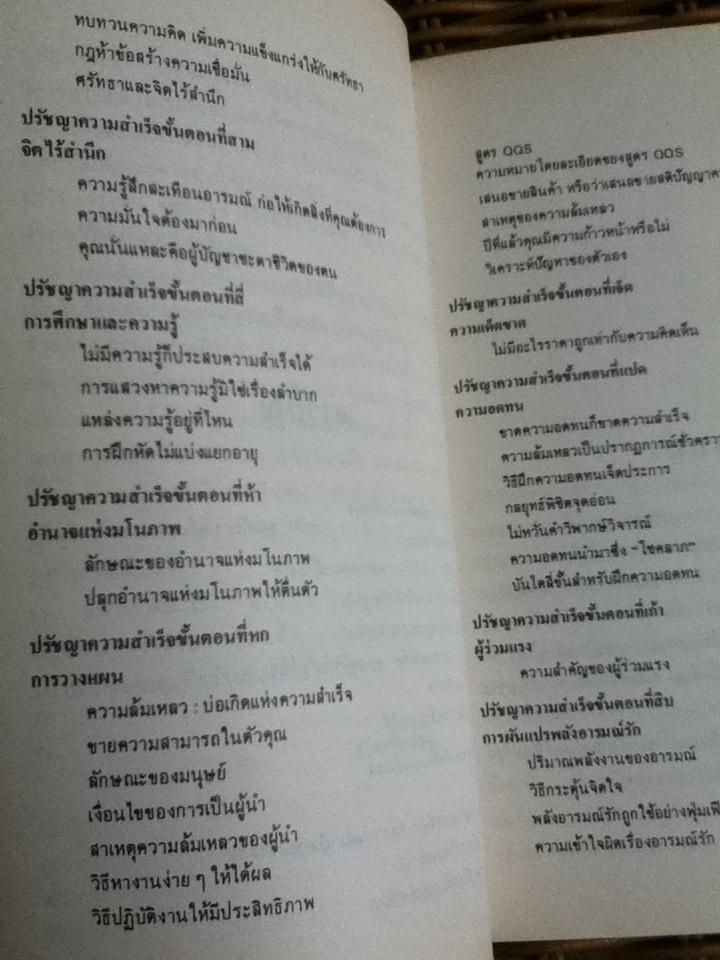 ทบทวนความคิด เพิ่มความแข็งแกร่งให้กับศรัทธา
กฎห้าข้อสร้างความเชื่อมั่น
ศรัทธาและจิตไร้สำนึก
ปรัชญาความสำเร็จขั้นตอนที่สาม
จิตไร้สำนึก
ความรู้สึกสะเทือนอารมณ์ ก่อให้เกิดสิ่งที่คุณต้องการ
ความมั่นใจต้องมาก่อน
คุณนั่นแหละคือผู้บัญชาชะตาชีวิตของตน
ปรัชญาความสำเร็จขั้นตอนที่สี่
การศึกษาและความรู้
ไม่มีความรู้ก็ประสบความสำเร็จได้
การแสวงหาความรู้มิใช่เรื่องลำบาก
แหล่งความรู้อยู่ที่ไหน
การฝึกหัดไม่แบ่งแยกอายุ
ปรัชญาความสำเร็จขั้นตอนที่ห้า
อำนาจแห่งมโนภาพ
ลักษณะของอำนาจแห่งมโนภาพ
ปลุกอำนาจแห่งมโนภาพให้ตื่นตัว
ปรัชญาความสำเร็จขั้นตอนที่หก
การวางแผน
ความล้มเหลว : บ่อเกิดแห่งความสำเร็จ
ขายความสามารถในตัวคุณ
ลักษณะของมนุษย์
เงื่อนไขของการเป็นผู้นำ
สาเหตุความล้มเหลวของผู้นำ
วิธีหางานง่าย ๆ ให้ได้ผล
วิธีปฏิบัติงานให้มีประสิทธิภาพ
สูตร QQS
ความหมายโดยละเอียดของสูตร QQS
เสนอขายสินค้า หรือว่าเสนอขายสติปัญญา
สาเหตุของความล้มเหลว
ปีที่แล้วคุณมีความก้าวหน้าหรือไม่
วิเคราะห์ปัญหาของตัวเอง
ปรัชญาความสำเร็จขั้นตอนที่เจ็ด
ความเด็ดขาด
ไม่มีอะไรราคาถูกเท่ากับความคิดเห็น
ปรัชญาความสำเร็จขั้นตอนที่แปด
ความอดทน
ขาดความอดทนก็ขาดความสำเร็จ
ความล้มเหลวเป็นปรากฏการณ์ชั่วครา
วิธีฝึกความอดทนเจ็ดประการ
กลยุทธ์พิชิตจุดอ่อน
ไม่หวั่นคำวิพากษ์วิจารณ์
ความอดทนนำมาซึ่ง "โชคลาภ"
บันไดสี่ขั้นสำหรับฝึกความอดทน
ปรัชญาความสำเร็จขั้นตอนที่เก้า
ผู้ร่วมแรง
ความสำคัญของผู้ร่วมแรง
ปรัชญาความสำเร็จขั้นตอนที่สิบ
การผันแปรพลังอารมณ์รัก
ปริมาณพลังงานของอารมณ์
วิธีกระตุ้นจิตใจ
พลังอารมณ์รักถูกใช้อย่างฟุ่มเฟื
ความเข้าใจผิดเรื่องอารมณ์รัก